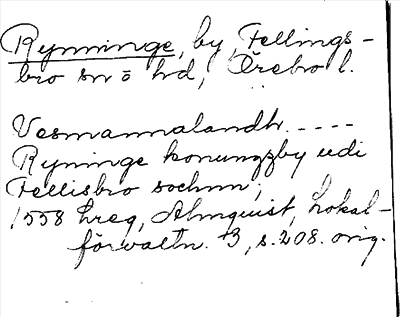 Rynninge, by, Fellings-
bro sn o hd, Örebro l.
Vesmannalandh. ----
Ryninge konungzby udi
Fellisbro sochnn;
1558 hreg, Almquist, Lokal-
förvaltn. 3, s. 208. orig.